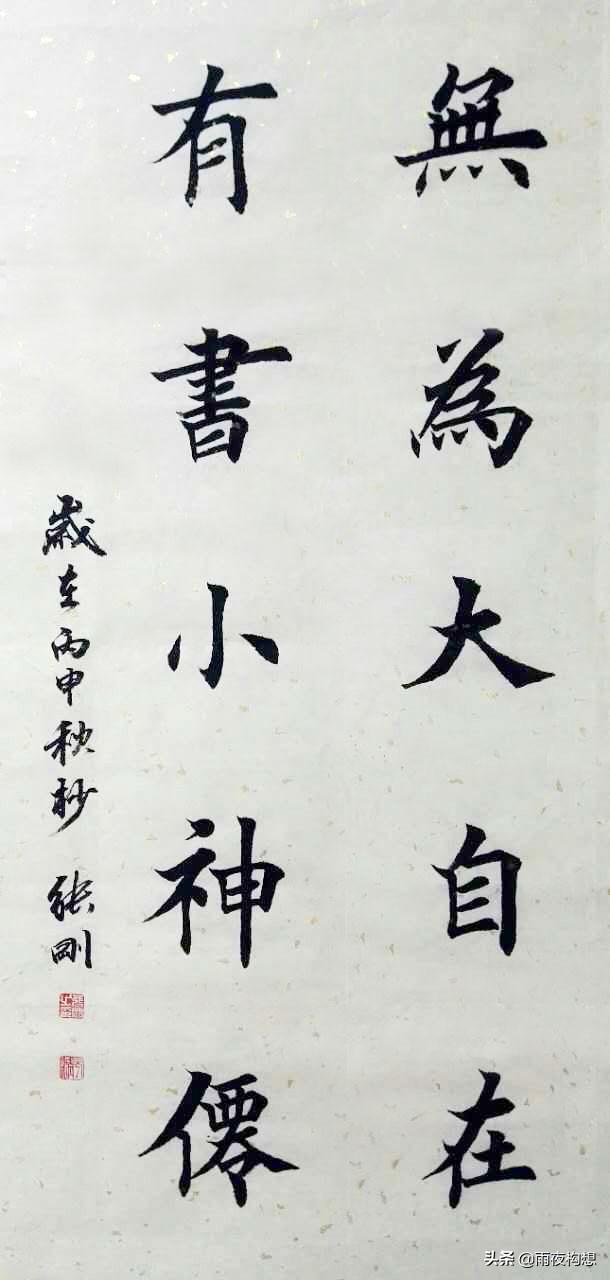 無為大自在
有書小神僊
歲在丙申秋杪 張剛
头条 @雨夜构想